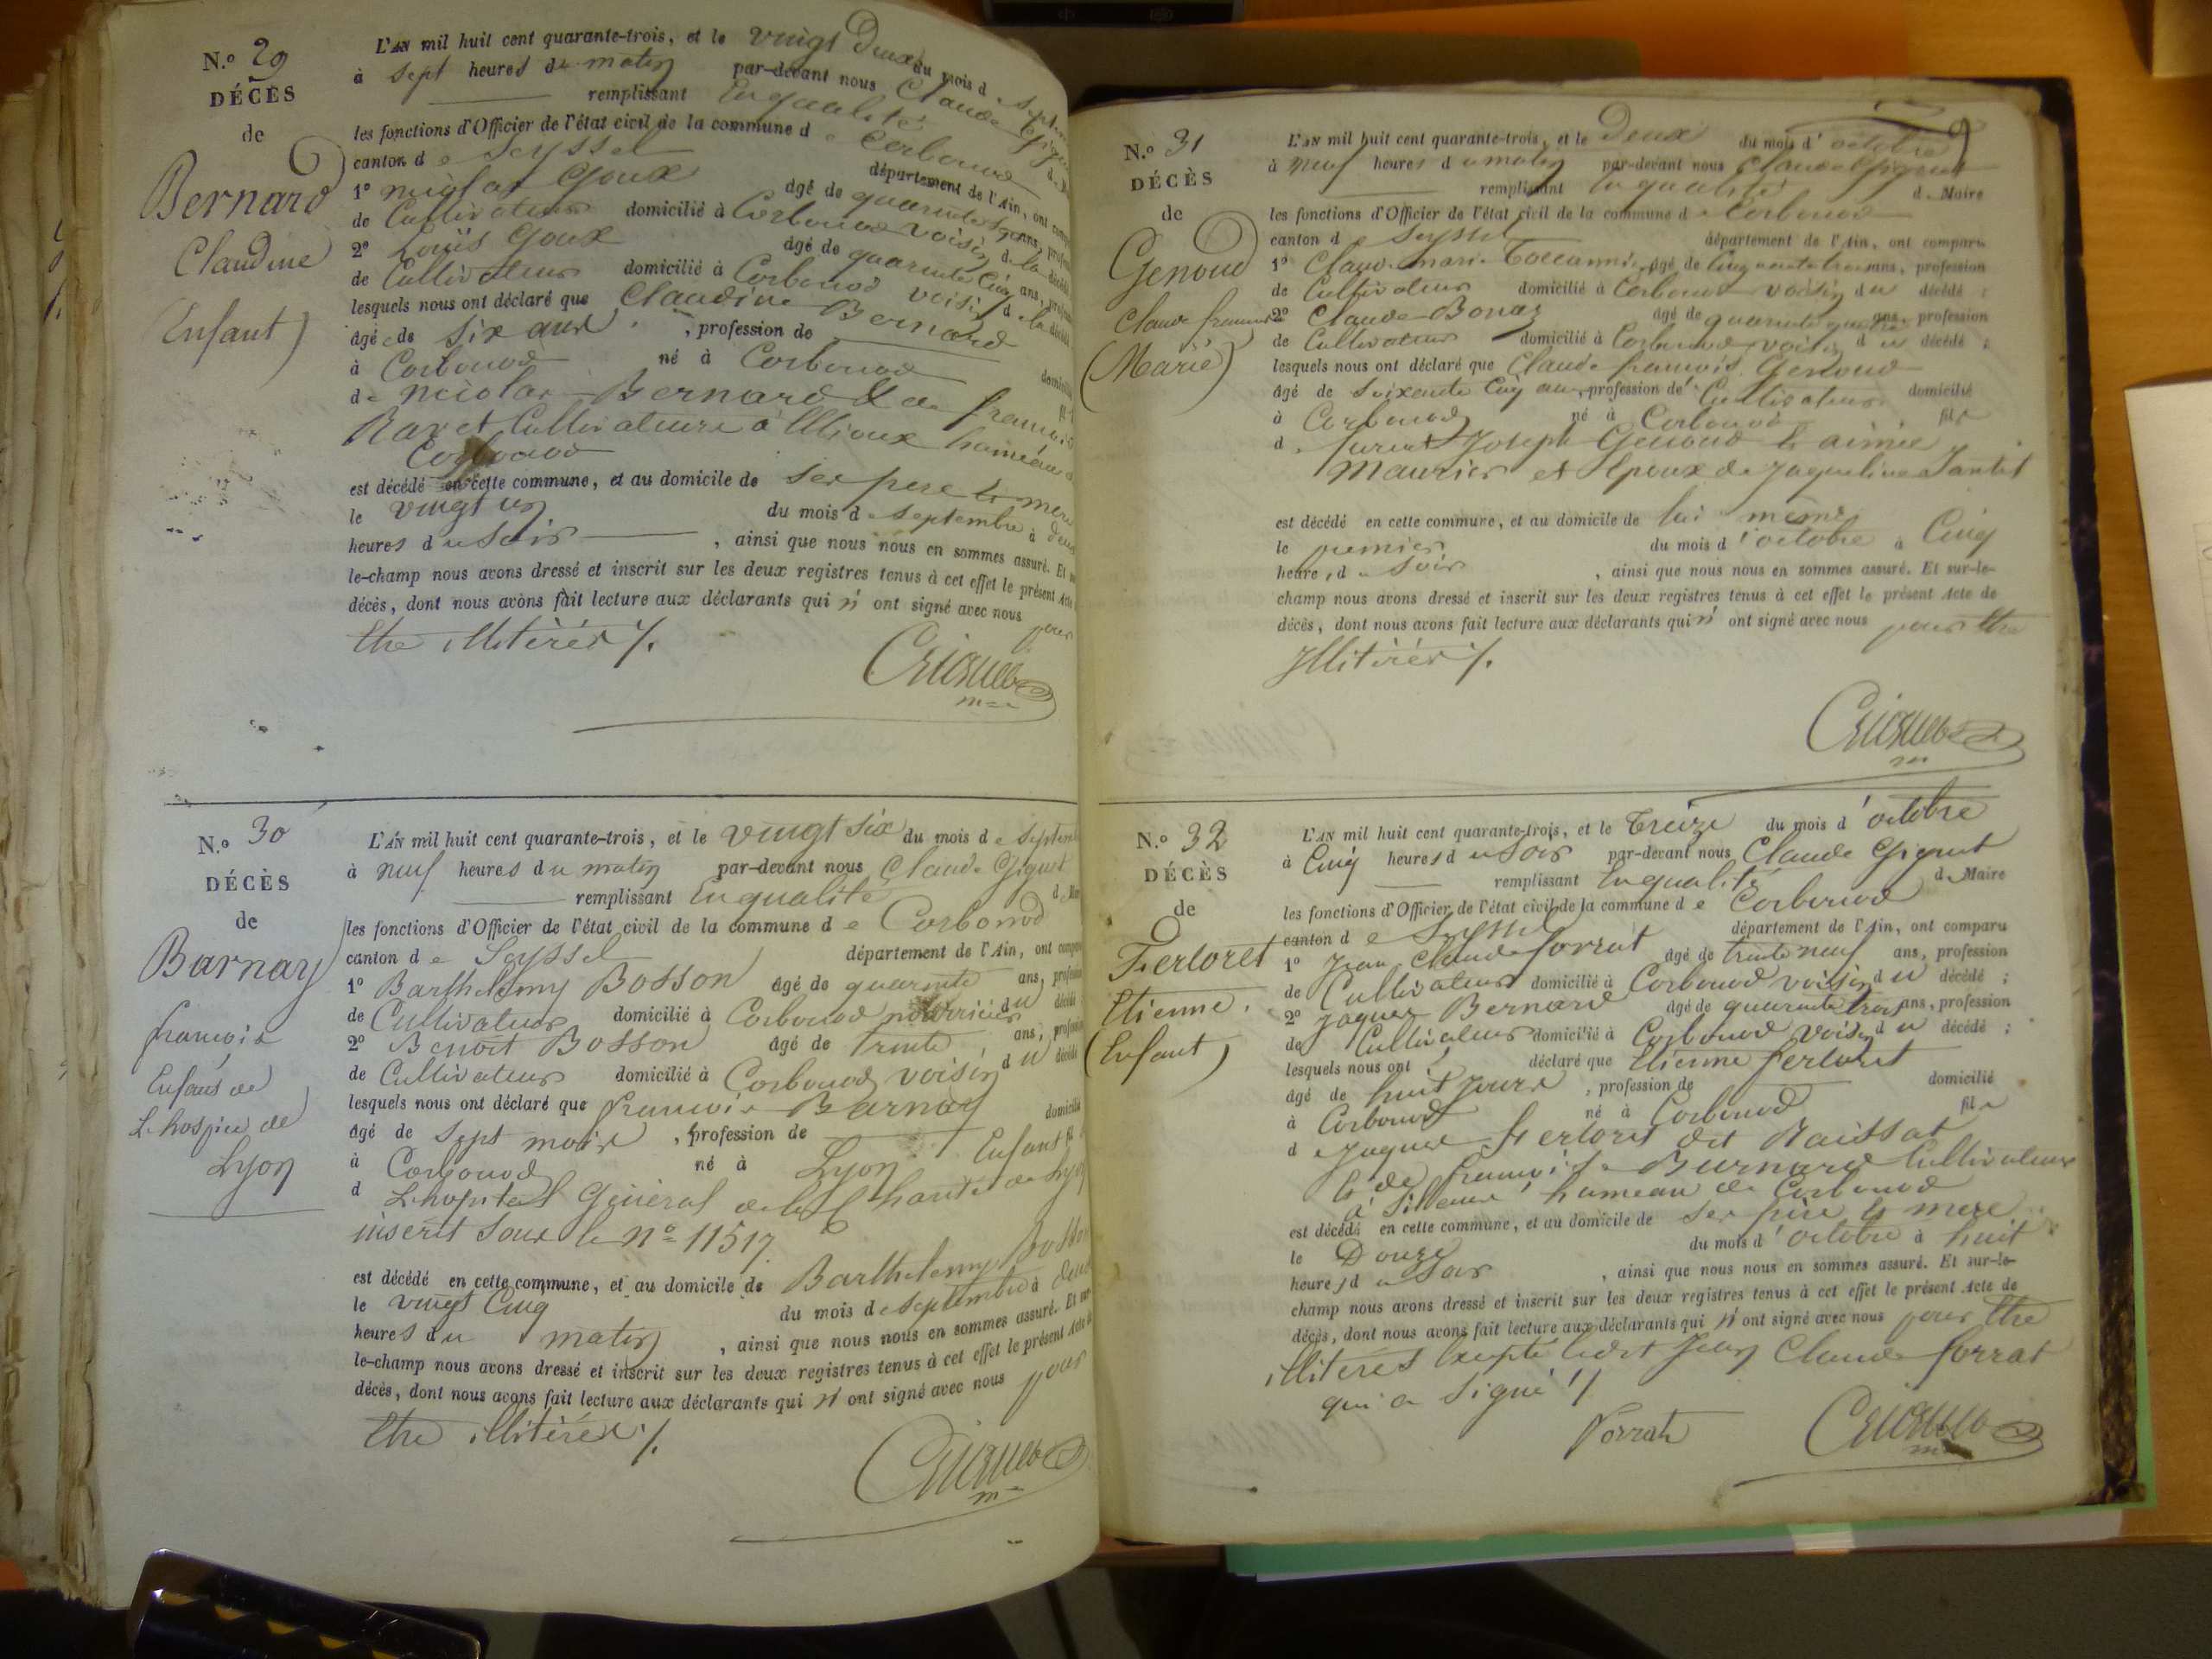 N.º 29
DÉCÈS
de
Bernard
Claudine
(Enfant)
L'AN mil huit cent quarante-trois, et le vingt Deux du mois d
à sept heures du matin par-devant nous Claude
remplissant En qualité
les fonctions d'Officier de l'état civil de la commune de Corbonod
canton de Seyssel département de l'Ain, ont
1º Goux âgé de quarante ans,
de Cultivateur domicilié à Corbonod voisin de la
2º Louis Goux âgé de quarante Cinq ans,
de Cultivateur domicilié à Corbonod voisin d la
lesquels nous ont déclaré que Claudine Bernard
âgé de six ans, profession de
à Corbonod né à Corbonod
de Bernard & de
Ravet Cultivateurs à hameau
Corbonod
est décédé en cette commune, et au domicile de ses pere & mere
le vingt un du mois de septembre à deux
heures du soir, ainsi que nous nous en sommes assuré. Et
le-champ nous avons dressé et inscrit sur les deux registres tenus à cet effet le présent Acte
décès, dont nous avons fait lecture aux déclarants qui n' ont signé avec nous pour
être illitérés /.
N.º 30
DÉCÈS
de
Barnay
francois
Enfans de
L hospice de
Lyon
L'AN mil huit cent quarante-trois, et le vingt six du mois de
à neuf heures du matin par-devant nous Claude Giguet
remplissant En qualité
les fonctions d'Officier de l'état civil de la commune de Corbonod
canton de Seyssel département de l'Ain, ont
1º Barthelemy Bosson âgé de quarante ans,
de Cultivateur domicilié à Corbonod nourricier du décédé
2º Benoit Bosson âgé de trente ans,
de Cultivateur domicilié à Corbonod voisin du décédé
lesquels nous ont déclaré que francois Barnay
âgé de sept mois, profession de domicilié
à Corbonod né à Lyon Enfant
d L'hopital Général de la Charité de Lyon
inscrit sous le nº 11517.
est décédé en cette commune, et au domicile de Barthelemy Bosson
le vingt Cinq du mois de septembre à deux
heures du matin, ainsi que nous nous en sommes assuré. Et
le-champ nous avons dressé et inscrit sur les deux registres tenus à cet effet le présent Acte
décès, dont nous avons fait lecture aux déclarants qui n' ont signé avec nous pour
être illitérés /.
N.º 31
DÉCÈS
de
Genoud
Claude francois
(Marié)
L'AN mil huit cent quarante-trois, et le Deux du mois d'octobre
à neuf heures du matin par-devant nous Claude Giguet
remplissant En qualité de Maire
les fonctions d'Officier de l'état civil de la commune de Corbonod
canton de Seyssel département de l'Ain, ont comparu
1º Claude marie âgé de Cinquante trois ans, profession
de Cultivateur domicilié à Corbonod voisin du décédé ;
2º Claude Bonaz âgé de quarante quatre ans, profession
de Cultivateur domicilié à Corbonod voisin du décédé ;
lesquels nous ont déclaré que Claude francois Genoud
âgé de soixante Cinq ans, profession de Cultivateur domicilié
à Corbonod né à Corbonod fils
d furent Joseph Genoud & aimée
Maurier et Epoux de Jaqueline
est décédé en cette commune, et au domicile de lui même
le premier du mois d'octobre à Cinq
heure, du soir, ainsi que nous nous en sommes assuré. Et sur-le-
champ nous avons dressé et inscrit sur les deux registres tenus à cet effet le présent Acte de
décès, dont nous avons fait lecture aux déclarants qui n' ont signé avec nous pour être
Illitérés /.
N.º 32
DÉCÈS
de
Fertoret
Etienne.
(Enfant)
L'AN mil huit cent quarante-trois, et le Treize du mois d'octobre
à Cinq heures du soir par-devant nous Claude Giguet
remplissant En qualité de Maire
les fonctions d'Officier de l'état civil de la commune de Corbonod
canton de Seyssel département de l'Ain, ont comparu
1º Jean Claude forrat âgé de trente neuf ans, profession
de Cultivateur domicilié à Corbonod voisin du décédé ;
2º Jaques Bernard âgé de quarante trois ans, profession
de Cultivateur domicilié à Corbonod voisin du décédé ;
lesquels nous ont déclaré que Etienne fertoret
âgé de huit jours, profession de domicilié
à Corbonod né à Corbonod fils
de Jaques fertoret dit Raissat
& de francoise Bernard Cultivateurs
à hameau de Corbonod
est décédé en cette commune, et au domicile de ses père & mere
le Douze du mois d'octobre à huit
heures du soir, ainsi que nous nous en sommes assuré. Et sur-le-
champ nous avons dressé et inscrit sur les deux registres tenus à cet effet le présent Acte de
décès, dont nous avons fait lecture aux déclarants qui n' ont signé avec nous pour être
illiteres Excepté ledit Jean Claude forrat
qui a signé /
Forrat